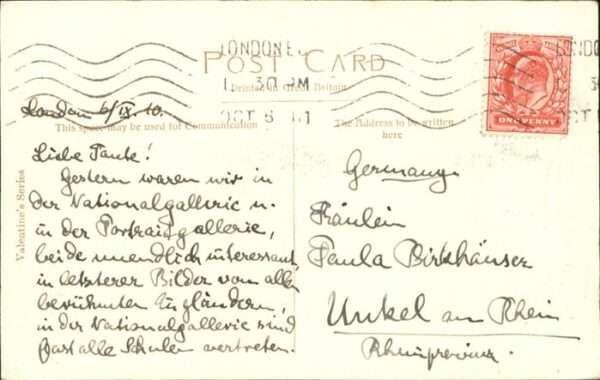 LONDON E.C.
POST CARD
1. 30 PM
Printed in Great Britain
OCT 6 11
ONE PENNY
London 6/IX. 10.
This space may be used for Communication
The Address to be written
here
Valentine's Series
Liebe Tante!
Gestern waren wir in
der Nationalgallerie u.
in der Portraitgallerie,
beide unendlich interessant,
in letzterer Bilder von allen
berühmten Engländern,
in der Nationalgallerie sind
fast alle Schulen vertreten.
Germany
Fräulein
Paula Birkhäuser
Unkel am Rhein
Rheinprovinz.